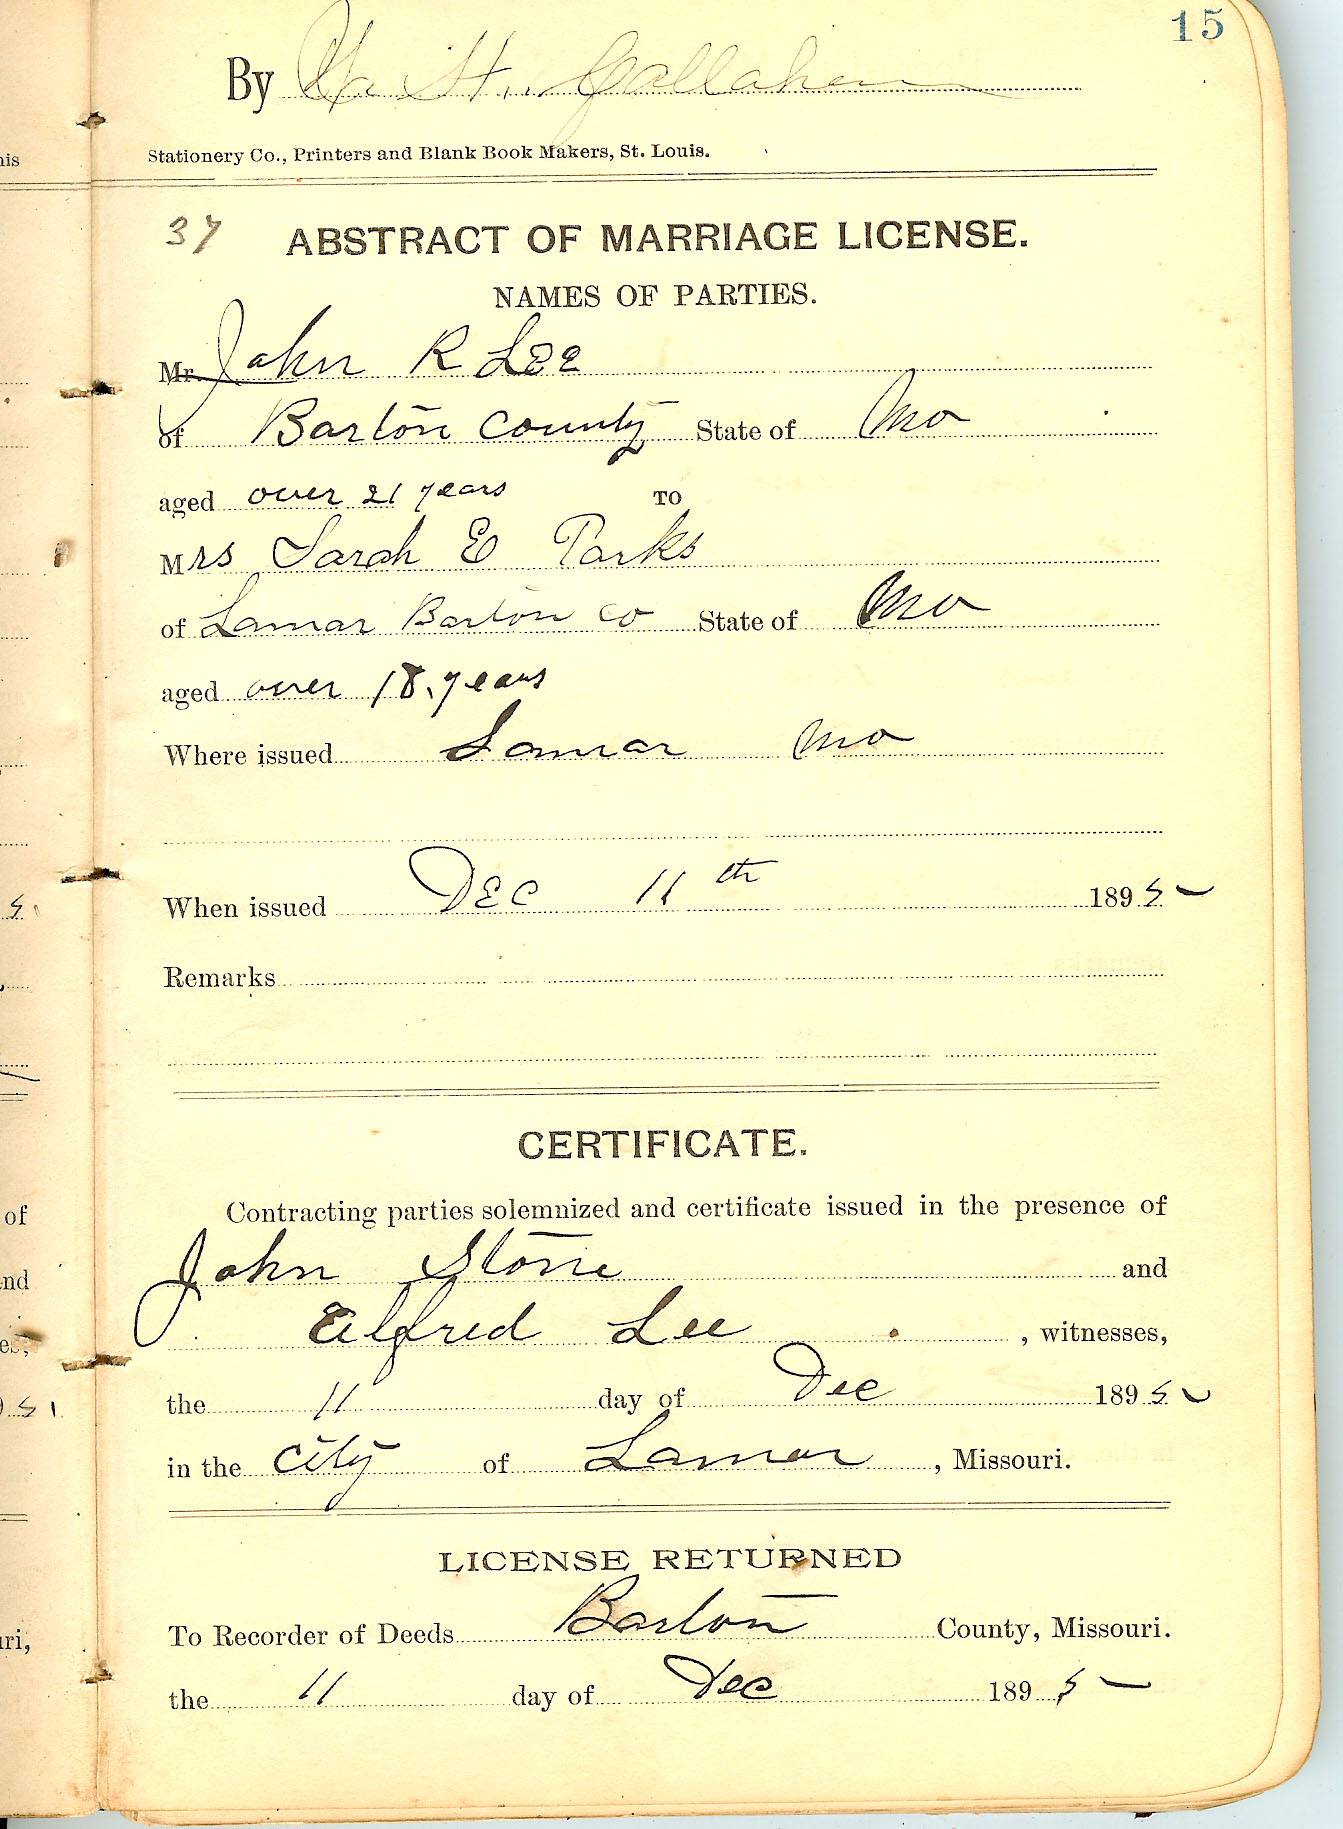 15
By H. Gallaher
his
Stationery Co., Printers and Blank Book Makers, St. Louis.
37 ABSTRACT OF MARRIAGE LICENSE.
NAMES OF PARTIES.
Mr. John R Lee
of Barton County State of Mo
aged over 21 years TO
Mrs Sarah E Parks
of Lamar Barton Co State of Mo
aged over 18. years
Where issued Lamar Mo
When issued Dec 11th 1895
Remarks
CERTIFICATE.
of Contracting parties solemnized and certificate issued in the presence of
nd John Stone and
es, Elfred Lee , witnesses,
the 11 day of Dec 1895
in the City of Lamar , Missouri.
LICENSE RETURNED
uri, To Recorder of Deeds Barton County, Missouri.
the 11 day of Dec 1895